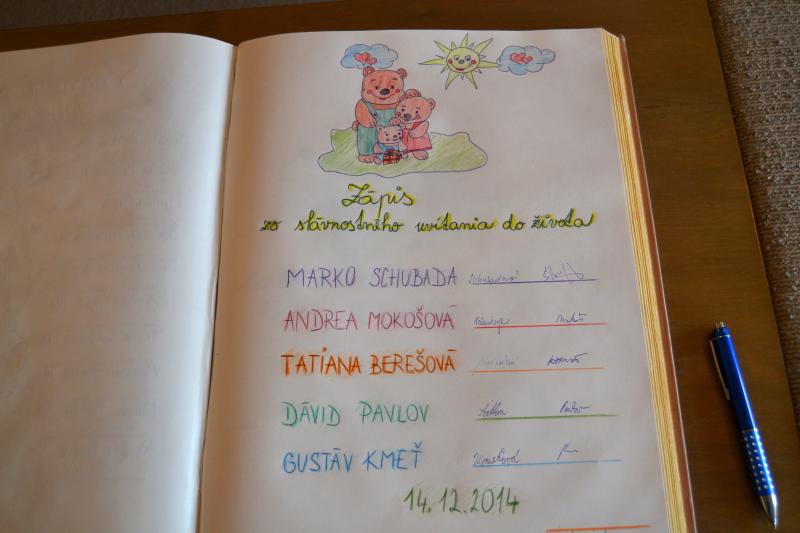 Zápis
zo slávnostného uvítania do života
MARKO SCHUBADA
ANDREA MOKOŠOVÁ
TATIANA BEREŠOVÁ
DÁVID PAVLOV
GUSTÁV KMEŤ Kmeťová
14.12.2014